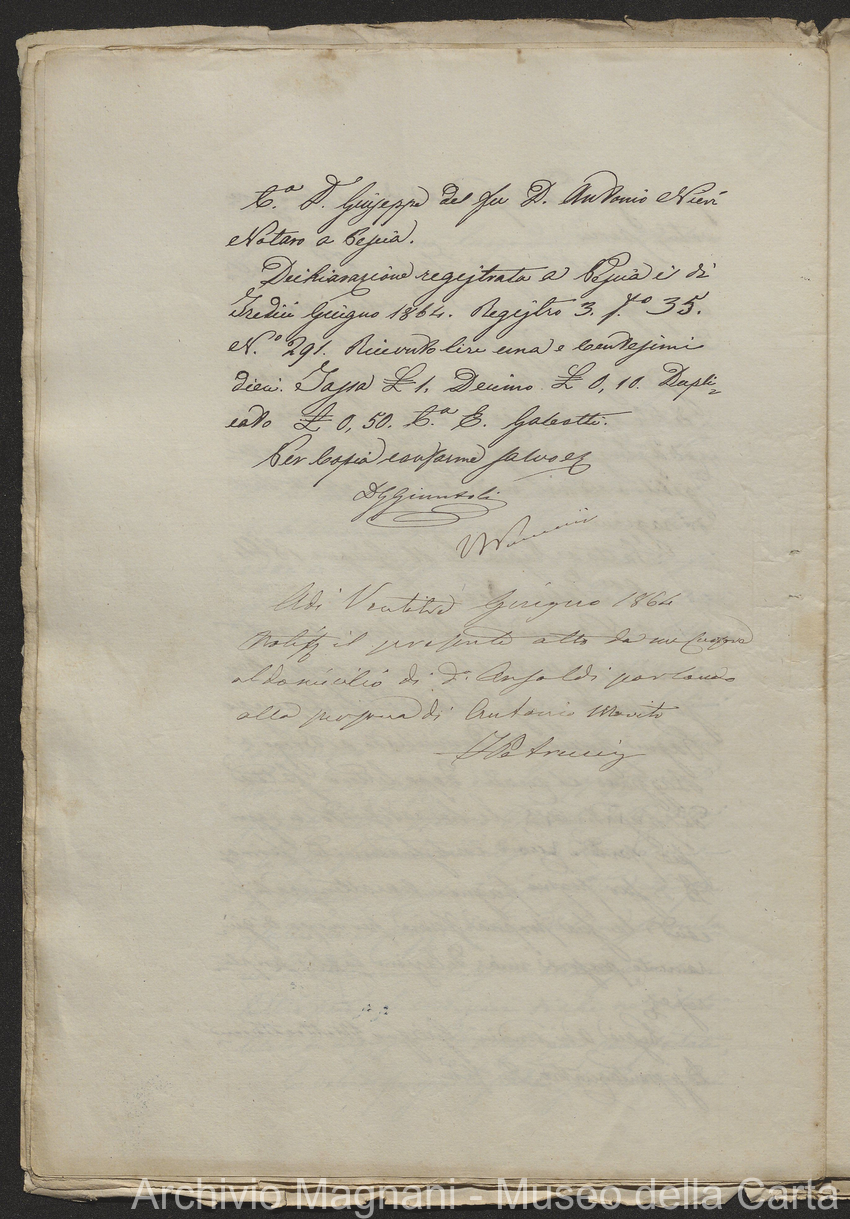 C.ª D. Giuseppe del fu D. Antonio Nieri
Notaro a Pescia.
Dichiarazione registrata a Pescia il dì
Tredici Giugno 1864. Registro 3. f.º 35.
N.º 291. Ricevuto lire una e Centesimi
dieci. Tassa £ 1. Decimo £ 0, 10. Dupli=
cato £ 0, 50. C.ª E. Galeotti.
Per Copia conforme salvo &
D G Giuntoli
Adì Ventitrè Giugno 1864
il presente atto da me
al domicilio di Dº Ansaldi parlando
alla persona di Antonio Marito
Archivio Magnani - Museo della Carta